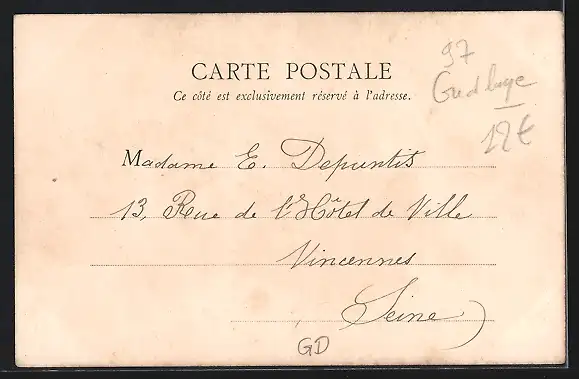 97
CARTE POSTALE
Ce côté est exclusivement réservé à l'adresse.
12€
Madame E. Depuntis
13, Rue de l'Hôtel de Ville
Vincennes
Seine)
GD